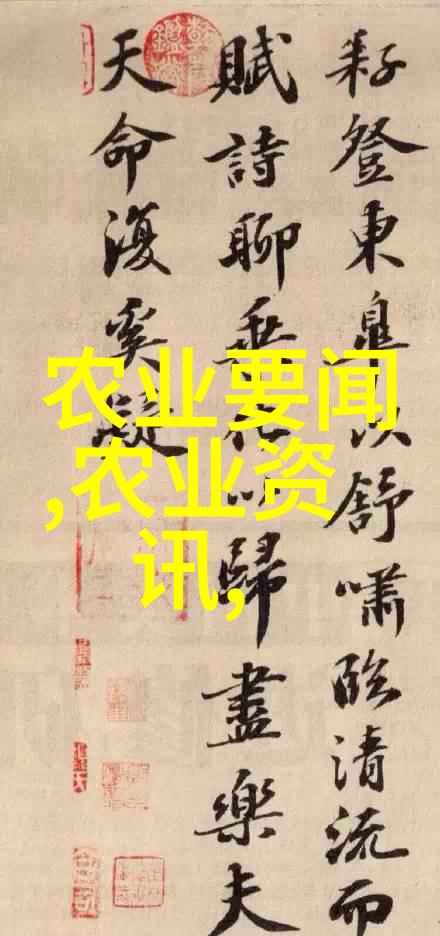 耔登東皋以舒嘯臨清流而
賦詩聊乘化以歸盡樂夫
天命復奚疑
农业要闻
,农业资
讯,